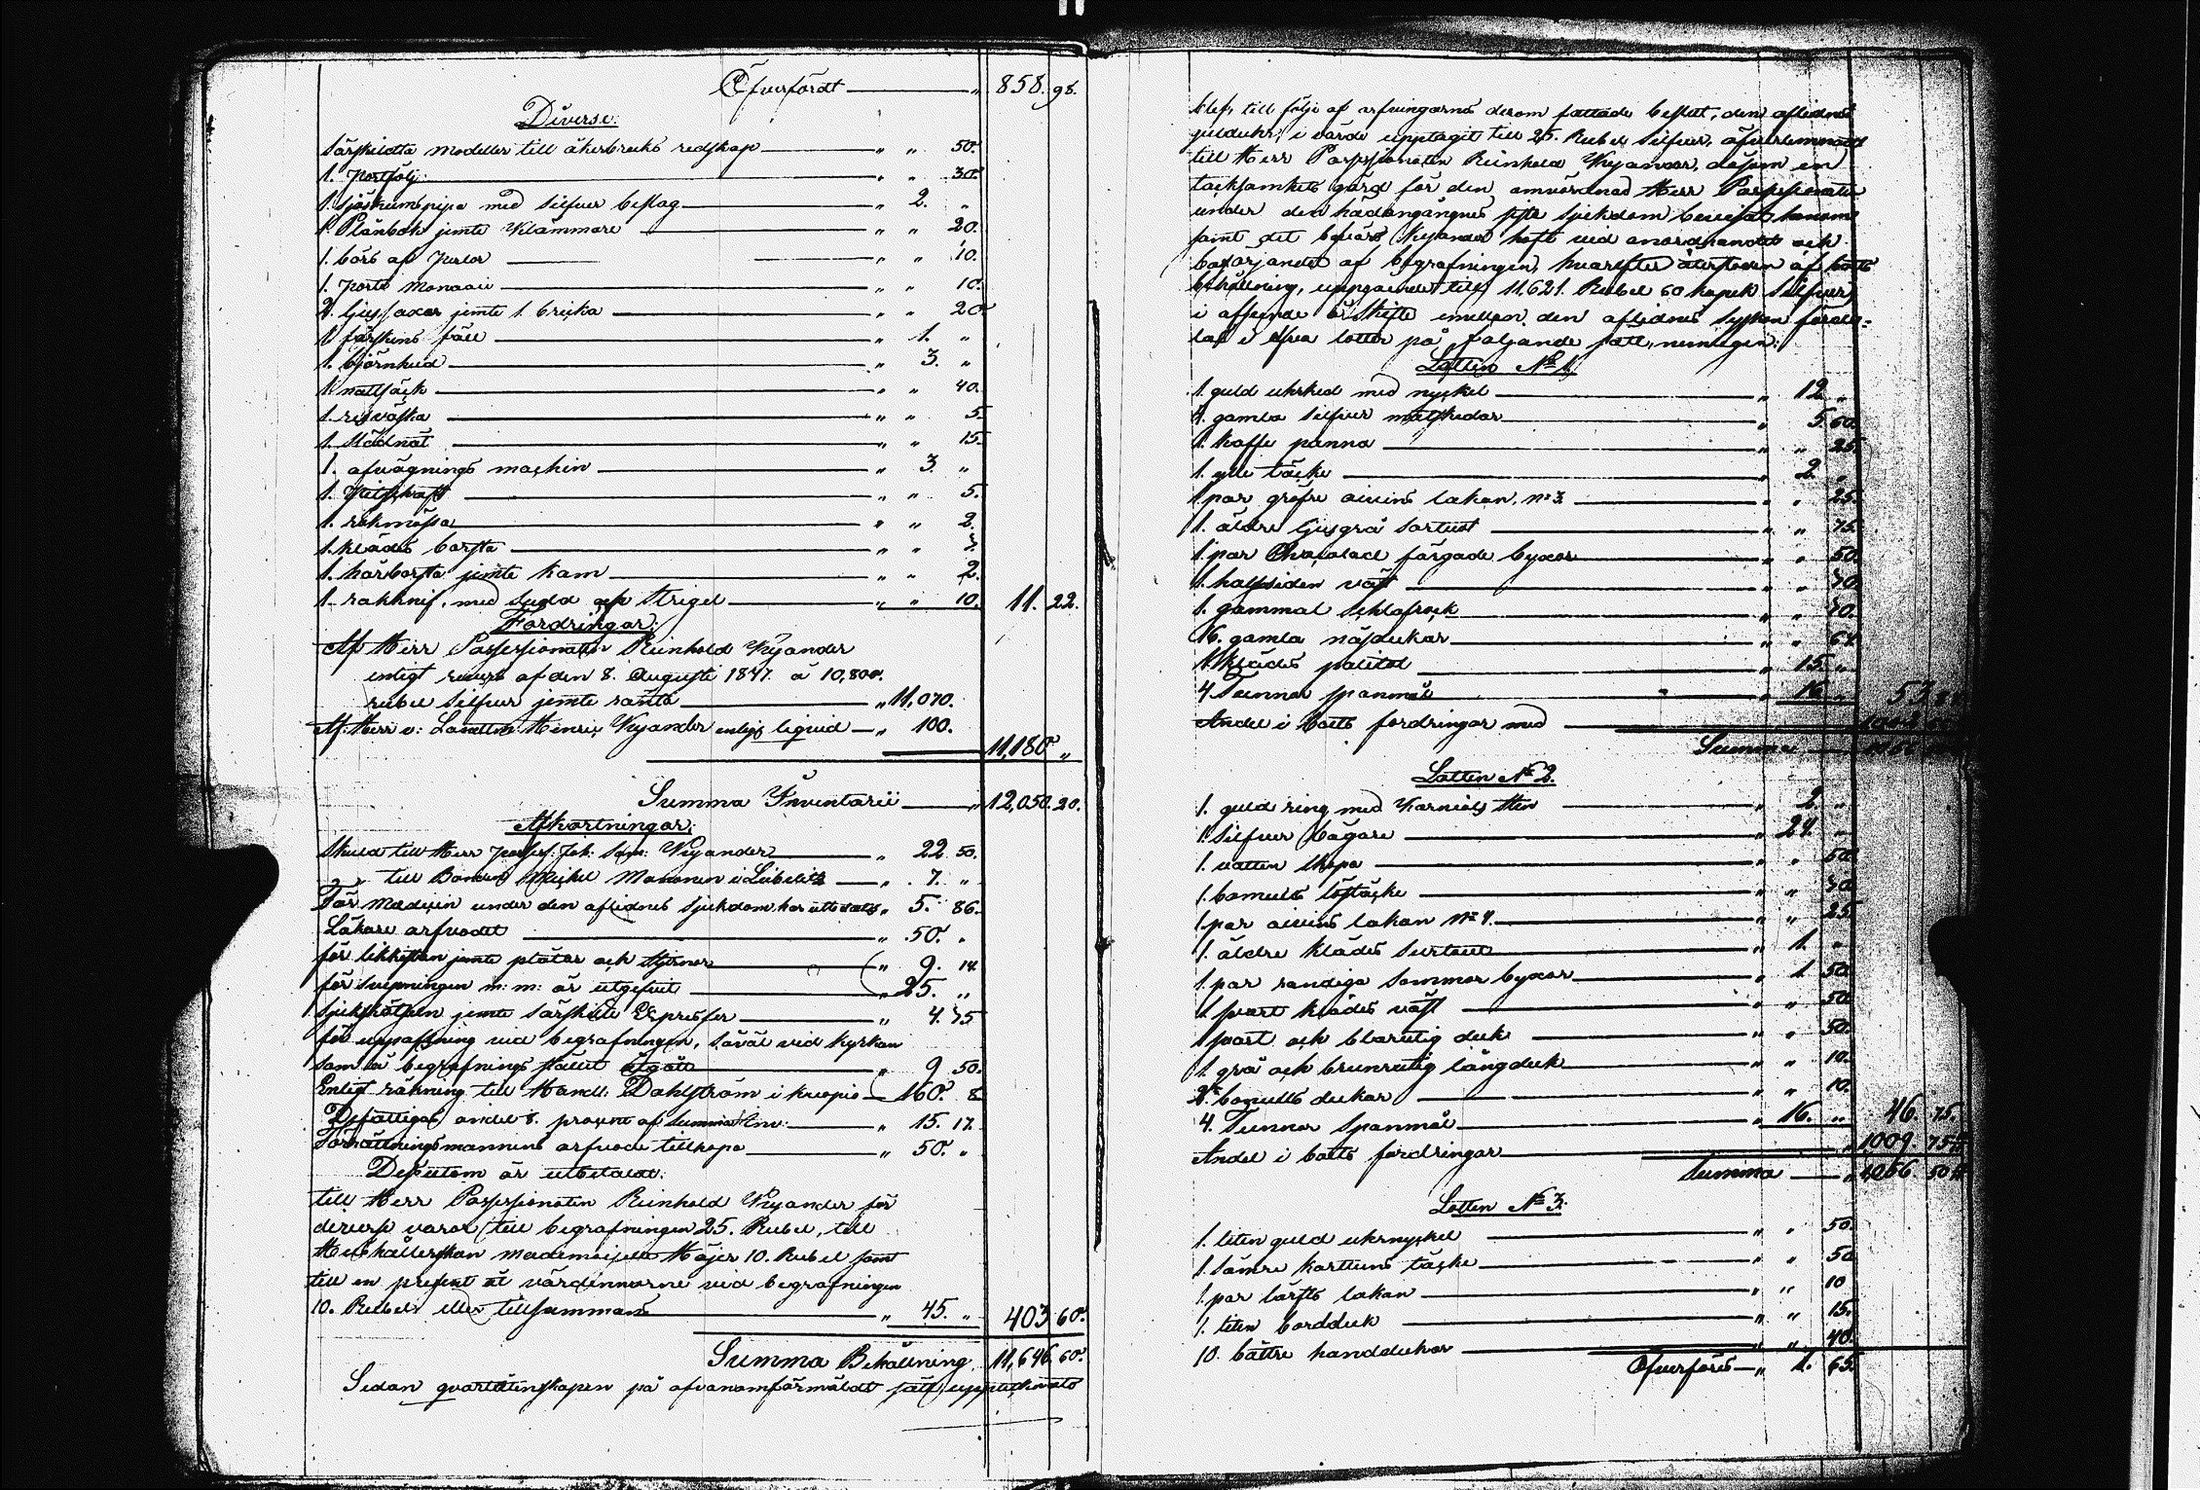 Öfverfördt — " 858. 98.
Diverse:
Särskildta modeller till åkerbruks redskap — " " 50.
1. Portfölj — " " 30.
1. sjöskumspipa med silfver beslag — " 2. "
1. Plånbok jemte Klämmare — " " 20.
1. börs af Perlor — " " 10.
1. Porte Monnaie — " " 10.
2. ljussaxar jemte 1. bricka — " " 20.
1. fårskins fäll — " 1. "
1. björnhud — " 3. "
1. nattsäck — " " 40.
1. resväska — " " 5.
1. — " " 15.
1. afvägnings machin — " 3. "
1. Pitskaft — " " 5.
1. rakmössa — " " 2.
1. klädes borsta — " " 3.
1. hårborsta jemte kam — " " 2.
1. rakknif, med och strigel — " " 10. 11. 22.
Fordringar:
Af Herr Possessionaten Reinhold Wyander
enligt revers af den 8. Augusti 1847. à 10,800.
rubel Silfver jemte ränta — " 11,070.
Af Herr v: Landtm: Henric Wyander enligt liquid — " 100.
11,180. "
Summa Inventarii — " 12,050. 20.
Afkortningar:
Skuld till Herr Possess: Joh: Sam: Wyander — " 22 50.
till Bonden Mickel Makonen i — " 7. "
För Medicin under den aflidnes sjukdom har utbetalts " 5. 86.
Läkare arfvodet — " 50. "
för likkistan jemte plåtar och stjernor — " 9. 14
för svepningen m: m: är utgifvit — " 25. "
sjukskötseln jemte särskilte Expresser — " 4. 75
för uppassning vid begrafningen, såväl vid kyrkan
som å begrafnings stället åtgått — " 9 50.
Enligt räkning till Handl: Dahlström i Kuopio — 160. 8
De fattigas andel 8. procent af Summa Inv: — " 15. 17.
Förrättningsmannens arfvode tillkopa — " 50. "
Dessutom är utbetaldt:
till Herr Possessionaten Reinhold Wyander för
diverse varor till begrafningen 25. Rubel, till
Hushållerskan Mademoiselle Höjer 10. Rubel samt
till en present åt värdinnorne vid begrafningen
10. Rubel eller tillsammans — " 45. " 403 60.
Summa Behållning 11,646. 60.
Sedan qvarlåtenskapen på ofvanomförmäldt sätt upptecknats
blef, till följe af arfvingarnes derom fattade beslut, den aflidnes
guldur, i värde upptagit till 25. Rubel Silfver, öfverlemnadt
till Herr Possessionaten Reinhold Wyander, såsom en
tacksamhets gärd för den omvårdnad Herr Possessionaten
under den hädangångnes sista sjukdom bevisat honom
samt det besvär Wyander haft vid anordnandet och
besörjandet af begrafningen, hvarefter återstoden af boets
behållning, uppgående till 11,621. Rubel 60 kopek Silfver,
i afseende å skifte emellan den aflidnes syskon fördel-
tas i lotter på följande sätt, nemligen:
Lotten N:o 1.
1. guld urked med nyckel — " 12 "
4. gamla silfver matskedar — " 5. 60.
1. kaffe panna — " " 25.
1. ylle täcke — " 2. "
1. par gröfre lakan, N:o 3. — " " 25.
1. äldre ljusgrå surtout — " " 75.
1. par Chocolad färgade byxor — " " 50.
1. halfsiden väst — " " 70.
1. gammal Schlafrock — " " 70.
16. gamla näsdukar — " " 64.
1. klädes paletot — " 15. "
4 Tunnor spanmål — " 16 " 53.
Andel i boets fordringar med —
Summa —
Lotten N:o 2.
1. guld ring med Karniols sten — " 2. "
1. silfver bägare — " 24. "
1. vatten skopa — " " 50.
1. bomulls täcke — " " 30
1. par lakan N:o 4. — " " 25.
1. äldre klädes surtout — " 1. "
1. par randiga sommar byxor — " 1 50.
1. svart klädes väst — " " 50
1 svart och blårutig duk — " " 50.
1. grå och brunrutig långduk — " " 10.
2. bomulls dukar — " " 10.
4. Tunnor Spanmål — " 16. " 46. 75.
Andel i boets fordringar — " 1009. 75
Summa — " 1056. 50
Lotten N:o 3.
1. liten guld urnyckel — " " 50.
1. sämre kattuns täcke — " " 50
1. par lärfts lakan — " " 10
1. liten bordduk — " " 15.
10. bättre handdukar — " " 40.
Öfverföres — " 1. 65.